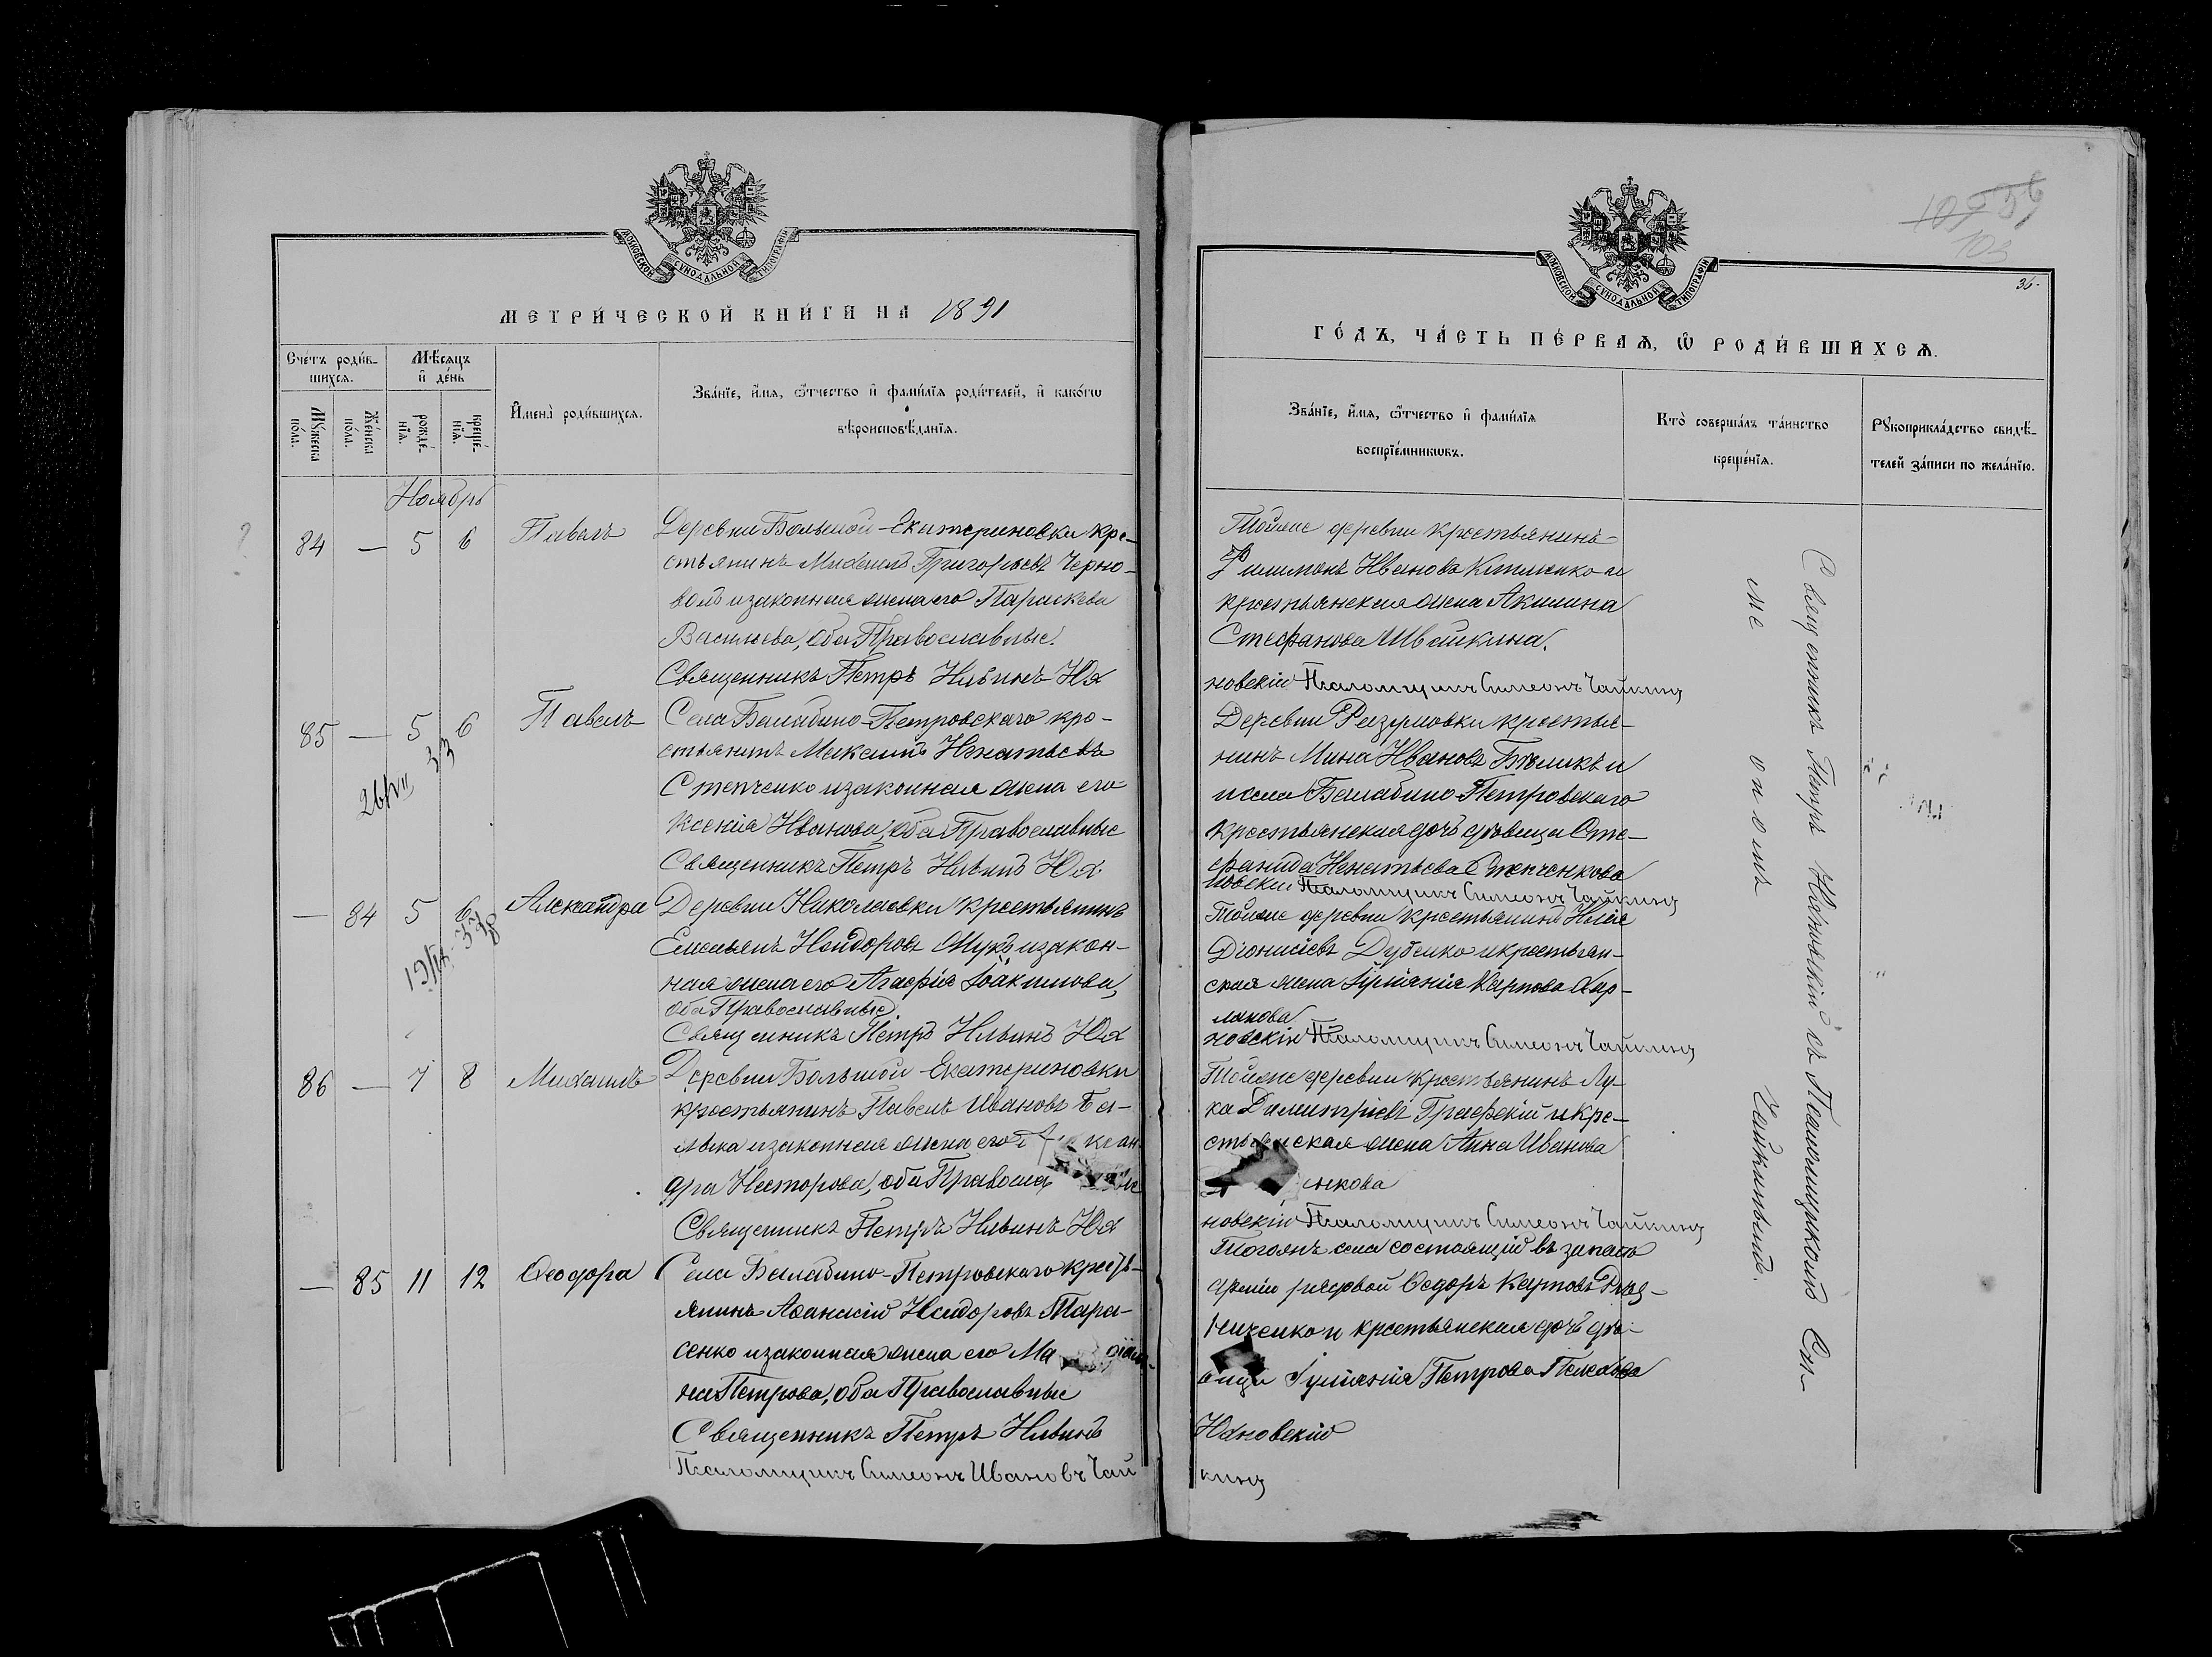 МОСКОВСКОЙ СѴНОДАЛЬНОЙ ТИПОГРАФІИ
МЕТРИ́ЧЕСКОЙ КНИ́ГИ НА 1891
Сче́тъ роди́вшихсѧ.
Мѣ́сѧцъ и҆ де́нь
Мꙋ́жеска по́ла.
Же́нска по́ла.
рожде́нїѧ.
креще́нїѧ.
И҆мена̀ роди́вшихсѧ.
Зва́нїе, и҆́мѧ, ѻ҆́тчество и҆ фами́лїѧ роди́телей, и҆ како́гѡ
вѣроисповѣ́данїѧ.
Ноябрь
84 — 5 6 Павелъ
Деревни Большой-Екатериновки кре-
стьянинъ Михаилъ Григорьевъ Черно-
волъ и законная жена его Параскева
Васильева, оба Православные.
Священникъ Петръ Ильинъ Юх
85 — 5 6 Павелъ
Села Балабино-Петровскаго кре-
стьянинъ Максимъ Игнатьевъ
Степченко и законная жена его
Ксенія Иванова, оба Православные
Священникъ Петръ Ильинъ Юх
— 84 5 6 Александра
Деревни Николаевки крестьянинъ
Емельянъ Исидоровъ Жукъ и закон-
ная жена его Агафія Іоакимова,
оба Православные.
Священникъ Петръ Ильинъ Юх
86 — 7 8 Михаилъ
Деревни Большой-Екатериновки
крестьянинъ Павелъ Ивановъ
и законная жена его
дра Несторова, оба Правосла
Священникъ Петръ Ильинъ Юх
— 85 11 12 Ѳеодора
Села Балабино-Петровскаго крестъ-
янинъ Аѳанасій Исидоровъ Тара-
сенко и законная жена его Ма
на Петрова, оба Православные
Священникъ Петръ Ильинъ
Псаломщикъ Симеонъ Ивановъ Чай
МОСКОВСКОЙ СѴНОДАЛЬНОЙ ТИПОГРАФІИ
103
36.
ГО́ДЪ, ЧА́СТЬ ПЕ́РВАѦ, Ѡ҆ РОДИ́ВШИХСѦ.
Зва́нїе, и҆́мѧ, ѻ҆́тчество и҆ фами́лїѧ
воспрїе́мникѡвъ.
Кто̀ соверша́лъ та́инство
креще́нїѧ.
Рꙋкоприкла́дство свидѣ́-
телей за́писи по жела́нїю.
Тойже деревни крестьянинъ
Филимонъ Ивановъ и
крестьянская жена Акилина
Стефанова Швайкина.
новскій Псаломщикъ Симеонъ Чайкинъ
Деревни Разумовки крестья-
нинъ Мина Ивановъ Бѣликъ и
села Балабино-Петровскаго
крестьянская дочь дѣвица Сте-
фанида Игнатьева Степченкова
новскій Псаломщикъ Симеонъ Чайкинъ
Тойже деревни крестьянинъ Илія
Діонисіевъ Дубенко и крестьян-
ская жена Іуліанія Карпова Хар-
ланова
новскій Псаломщикъ Симеонъ Чайкинъ
Тойже деревни крестьянинъ Лу-
ка Димитріевъ Графскій и кре-
стьянская жена Анна Иванова
нкова
новскій Псаломщикъ Симеонъ Чайкинъ
Тогожъ села состоящій въ запасѣ
арміи рядовой Ѳедоръ Карповъ
ниченко и крестьянская дочь дѣ-
вица Іуліанія Петрова
Юхновскій
кинъ
Священникъ Петръ Юхновскій съ Псаломщикомъ Си-
меономъ Чайкинымъ.